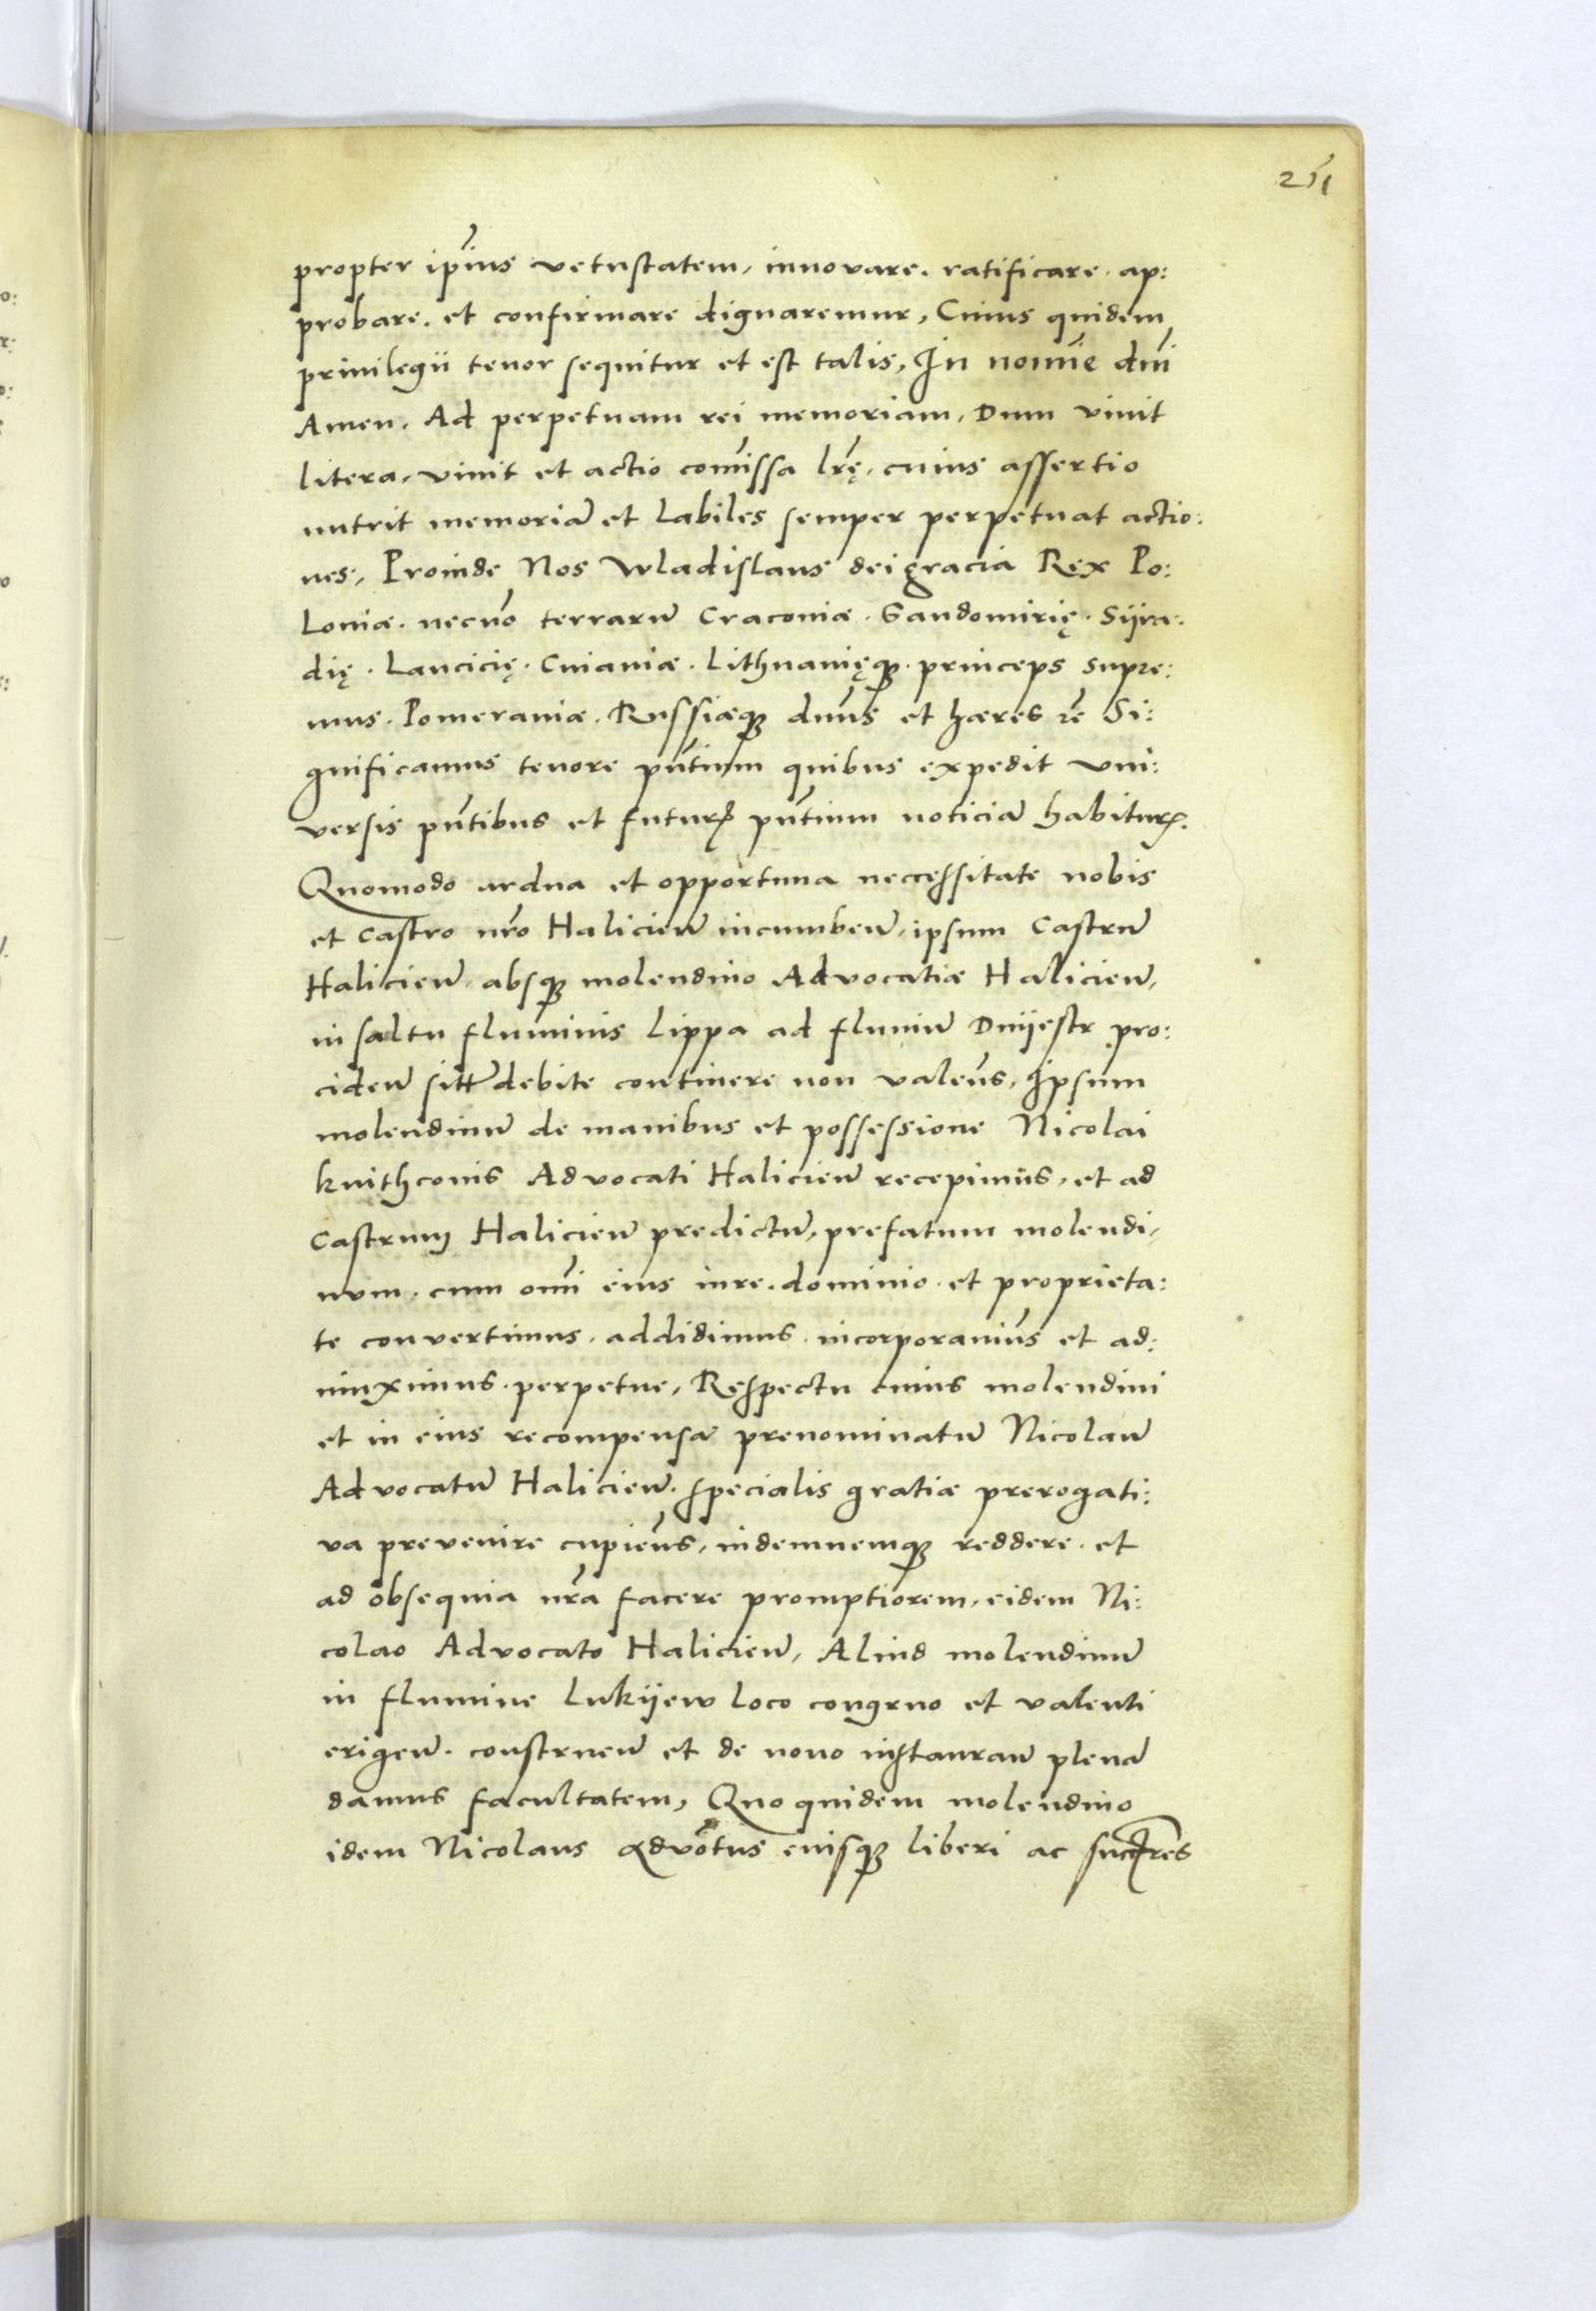 211
propter ip̃ius vetustatem, innovare. ratificare. ap:
probare. et confirmare dignaremur, Cuius quidem
priuilegii tenor sequitur et est talis, In nomĩe dñi
Amen. Ad perpetuam rei memoriam, Dum viuit
litera, viuit et actio com̃issa lr̃ę, cuius assertio
nutrit memoriã et labiles semper perpetuat actio:
nes, Proinde Nos Wladislaus dei gracia Rex Po:
loniæ. necnõ terrarũ Cracouiæ. Sandomirię. Sijra:
dię. Lancicię. Cuiauiæ. Lithuanięq; princeps supre:
mus. Pomeraniæ. Russiæq; dñus et hæres rẽ Si:
gnificamus tenore pñtium quibus expedit vni:
versis pñtibus et futurꝝ pñtium noticiã habiturꝝ.
Quomodo ardua et opportuna neccessitate nobis
et Castro nr̃o Halicieñ incumbeñ, ipsum Castrũ
Halicieñ, absq; molendino Advocatiæ Halicieñ,
in saltu fluminis Lippa ad fluuiũ Dnijestr pro:
cideñ sitũ debite continere non valeñs, Ipsum
molendinũ de manibus et possessione Nicolai
knithconis Advocati Halicieñ recepimus, et ad
Castrum Halicieñ predictũ, prefatum molendi,
num. cum om̃i eius iure. dominio. et proprieta:
te convertimus. addidimus. incorporauim̃s et ad:
iunximus. perpetue, Respectu cuius molendini
et in eius recompensã prenominatũ Nicolaũ
Advocatũ Halicieñ. specialis gratiæ prerogati:
va prevenire cupieñs, indemnemq; reddere. et
ad obsequia nr̃a facere promptiorem, eidem Ni:
colao Advocato Halicieñ, Aliud molendinũ
in flumine Lukijew loco congruo et valenti
erigeñ. construeñ et de nouo instaurañ plenã
damus facultatem, Quo quidem molendino
idem Nicolaus Advõtus eiusq; liberi ac succr̃es